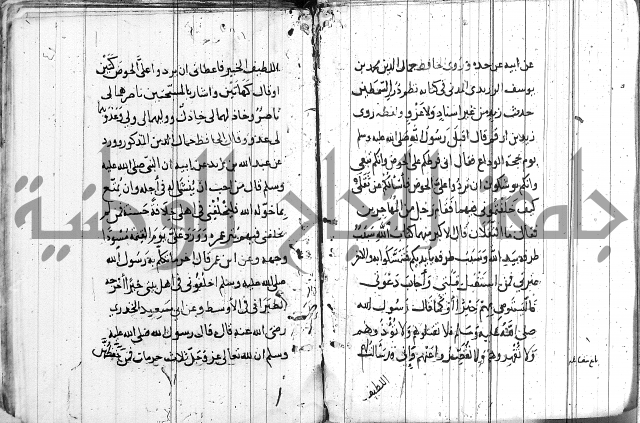 عن ابيه عن جده وروى الحافظ جمال الدين محمد بن
يوسف الزرندي المدني في كتابه نظم درر السمطين
حديث زيد من غير اسناد ولا عزو ولفظه روى
زيد بن ارقم قال اقبل رسول الله صلى الله عليه وسلم
يوم حجة الوداع فقال اني فرطكم على الحوض وانكم تبعي
وانكم توشكون ان تردوا علي الحوض فاسألكم عن ثقلي
كيف خلفتموني فيهما فقام رجل من المهاجرين
فقال ما الثقلان قال الاكبر منهما كتاب الله سبب
طرفه بيد الله وسبب طرفه بايديكم فتمسكوا به والاصغر
عترتي فمن استقبل قبلتي واجاب دعوتي
فليستوص بهم خيرا او كما قال رسول الله
صلى الله عليه وسلم فلا تقتلوهم ولا
ولا تقهروهم ولا تقصروا عنهم واني
اللطيف
اللطيف الخبير فاعطاني ان يردوا علي الحوض كتين
او قال كهاتين واشار بالمسبحتين ناصرهما لي
ناصر وخاذلهما لي خاذل ووليهما لي ولي وعدوهما
لي عدو وقال الحافظ جمال الدين المذكور وورد
عن عبد الله بن زيد عن ابيه ان النبي صلى الله عليه
وسلم قال من احب ان ينسأ له في اجله وان يمتع
بما خوله الله فليخلفني في اهلي خلافة حسنة فمن لم
يخلفني فيهم بتر عمره وورد علي يوم القيمة مسودا
وجهه وعن ابن عمر قال اخر ما تكلم به رسول الله
صلى الله عليه وسلم اخلفوني في اهل بيتي خيرا اخرجه
الطبراني في الاوسط وعن ابي سعيد الخدري
رضي الله عنه قال قال رسول الله صلى الله عليه
وسلم ان لله تعالى عز وجل ثلاث حرمات فمن حفظهن
جامعة النجاح الوطنية